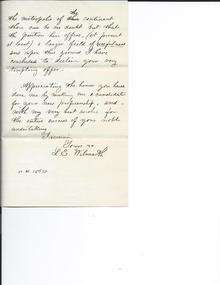 the metropolis of the continent
there can be no doubt but that
the position here offers, (at present
at least) a larger field of usefulness
and upon this ground I have
concluded to decline your very
tempting offer.
Appreciating the honor you have
done me by making me a candidate
for your new professorship, and
with my very best wishes for
the entire success of your noble
undertaking
I remain
Yours
L. E. Wilmarth